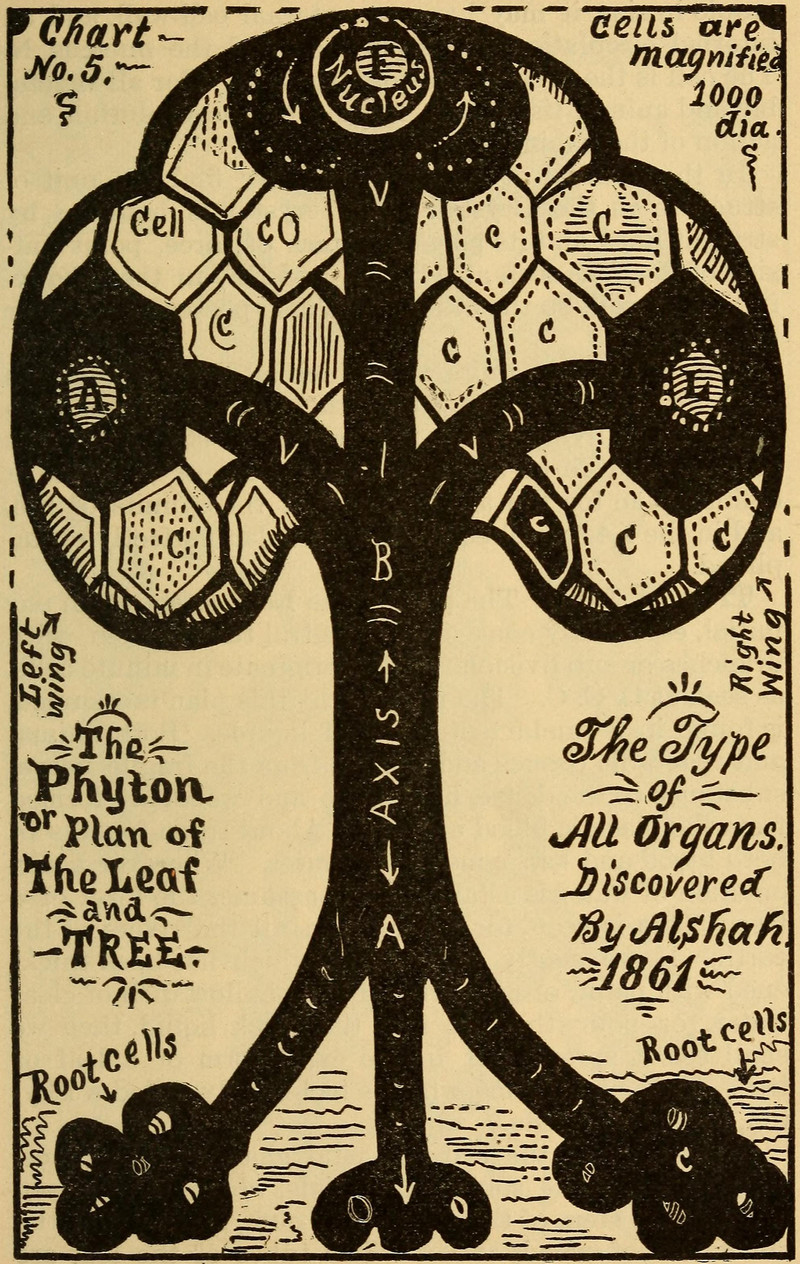 Chart
No. 5.
Cells are
magnified
1000
dia.
F
Nucleus
V
Cell
CO
C
C
C
C
C
A
L
V
V
C
C
C
C
B
AXIS
A
Left
Wing
Right
Wing
The
Phyton
or Plan of
The Leaf
and
TREE.
The Type
of
All Organs.
Discovered
By Alshah.
1861
Root cells
Root cells
C